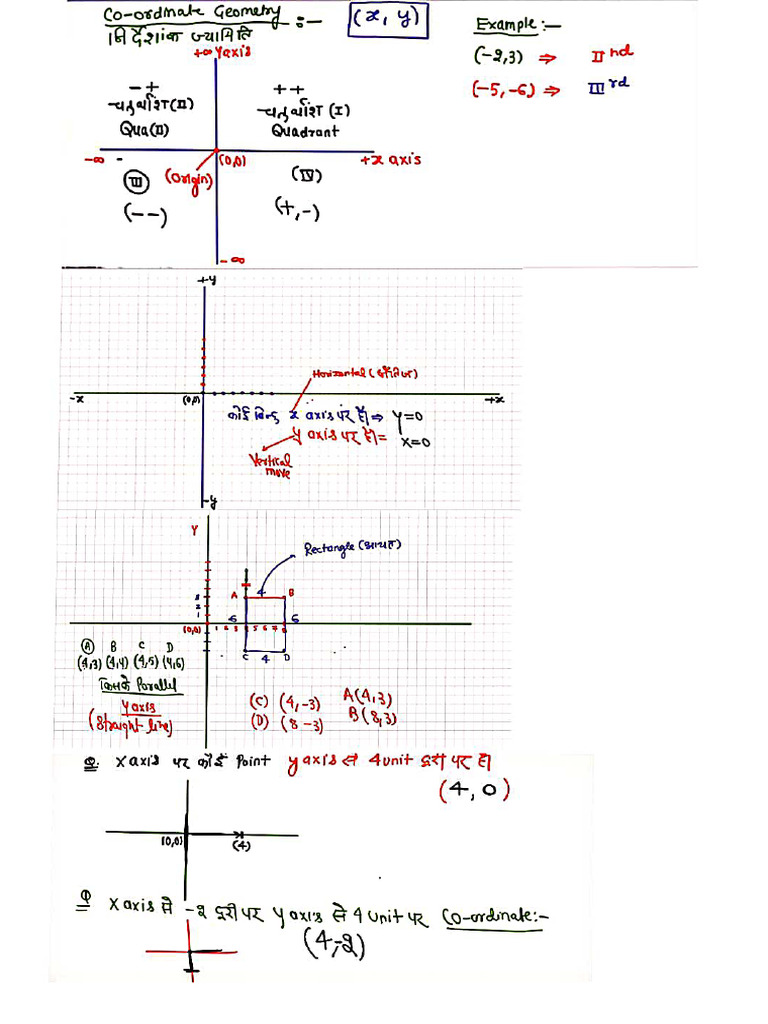 Co-ordinate Geometry :- (x, y)
निर्देशांक ज्यामिति
Example:-
(-2,3) ⇒ IInd
(-5,-6) ⇒ IIIrd
+∞ Y axis
- +
चतुर्थांश (II)
Qua(II)
+ +
चतुर्थांश (I)
Quadrant
-∞
(0,0)
+x axis
(Origin)
III
(--)
(IV)
(+,-)
-∞
+y
Horizontal (क्षैतिज)
-x
(0,0)
+x
कोई बिन्दु x axis पर है ⇒ y=0
y axis पर है = x=0
Vertical
move
-y
Y
Rectangle (आयत)
A 4 B
3
2
1
6 6
(0,0) 1 2 3 4 5 6 7 8
C 4 D
A B C D
(4,3) (4,4) (4,5) (4,6)
किसके Parallel
y axis
(Straight line)
(C) (4,-3) A(4,3)
(D) (8 -3) B(8,3)
Q. x axis पर कोई Point y axis से 4 unit दूरी पर है।
(4, 0)
(0,0)
(4)
Q x axis से -2 दूरी पर y axis से 4 unit पर Co-ordinate:-
(4,-2)